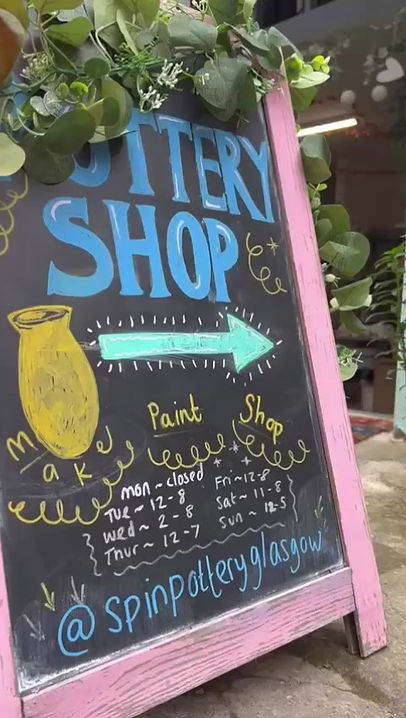 POTTERY
SHOP
Make Paint Shop
Mon ~ closed
Tue ~ 12-8
Wed ~ 2-8
Thur ~ 12-7
Fri ~ 12-8
Sat ~ 11-8
Sun ~ 12-5
@spinpotteryglasgow